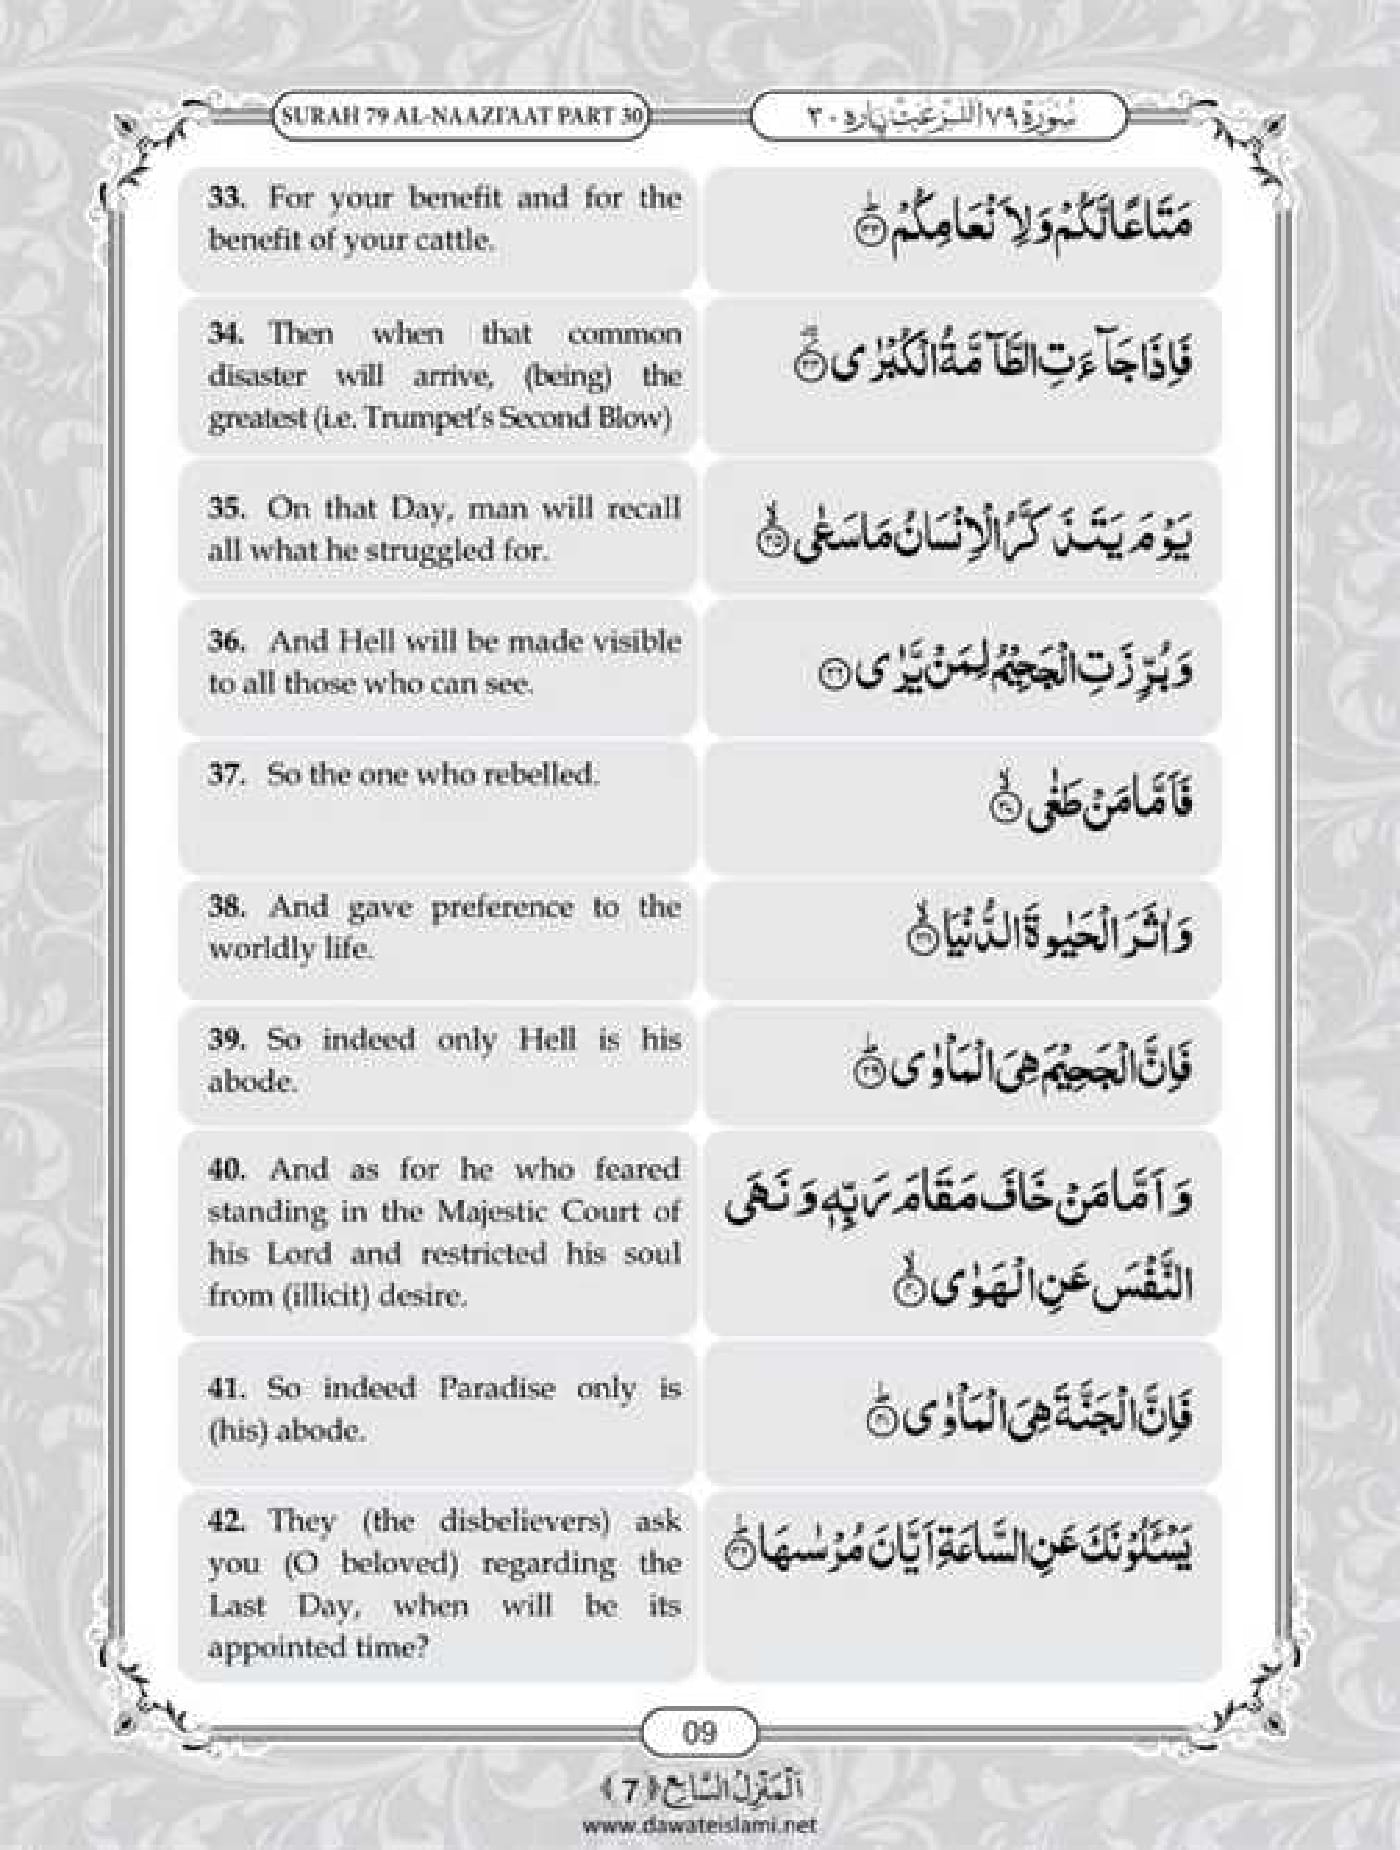 SURAH 79 AL-NAAZI'AAT PART 30
سُوْرَة ٧٩ اَلنّٰزِعٰت پاره ٣٠
33. For your benefit and for the
benefit of your cattle.
مَتَاعًا لَّكُمْ وَلِاَنْعَامِكُمْ ؕ﴿۳۳﴾
34. Then when that common
disaster will arrive, (being) the
greatest (i.e. Trumpet's Second Blow)
فَاِذَا جَآءَتِ الطَّآمَّةُ الْكُبْرٰى ۫ۖ﴿۳۴﴾
35. On that Day, man will recall
all what he struggled for.
يَوْمَ يَتَذَكَّرُ الْاِنْسَانُ مَا سَعٰى ۙ﴿۳۵﴾
36. And Hell will be made visible
to all those who can see.
وَ بُرِّزَتِ الْجَحِيْمُ لِمَنْ يَّرٰى ﴿۳۶﴾
37. So the one who rebelled.
فَاَمَّا مَنْ طَغٰى ۙ﴿۳۷﴾
38. And gave preference to the
worldly life.
وَ اٰثَرَ الْحَيٰوةَ الدُّنْيَا ۙ﴿۳۸﴾
39. So indeed only Hell is his
abode.
فَاِنَّ الْجَحِيْمَ هِيَ الْمَاْوٰى ؕ﴿۳۹﴾
40. And as for he who feared
standing in the Majestic Court of
his Lord and restricted his soul
from (illicit) desire.
وَ اَمَّا مَنْ خَافَ مَقَامَ رَبِّهٖ وَ نَهَى
النَّفْسَ عَنِ الْهَوٰى ۙ﴿۴۰﴾
41. So indeed Paradise only is
(his) abode.
فَاِنَّ الْجَنَّةَ هِيَ الْمَاْوٰى ؕ﴿۴۱﴾
42. They (the disbelievers) ask
you (O beloved) regarding the
Last Day, when will be its
appointed time?
يَسْـَٔلُوْنَكَ عَنِ السَّاعَةِ اَيَّانَ مُرْسٰىهَا ؕ﴿۴۲﴾
09
اَلْمَنْزِلُ السَّابِع ﴿7﴾
www.dawateislami.net